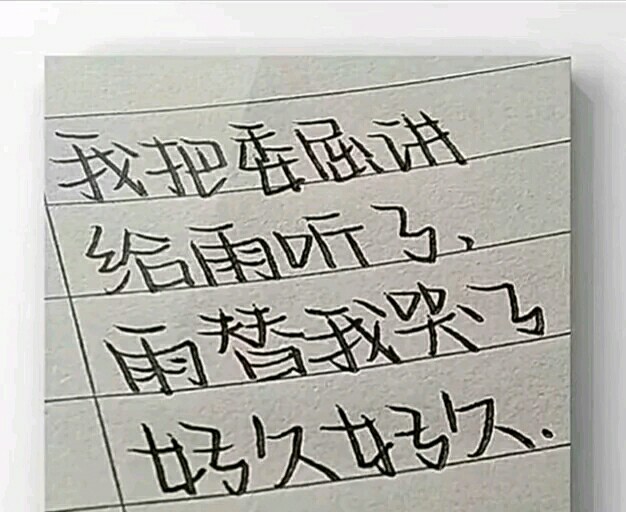 我把委屈讲
给雨听了、
雨替我哭了
好久好久.